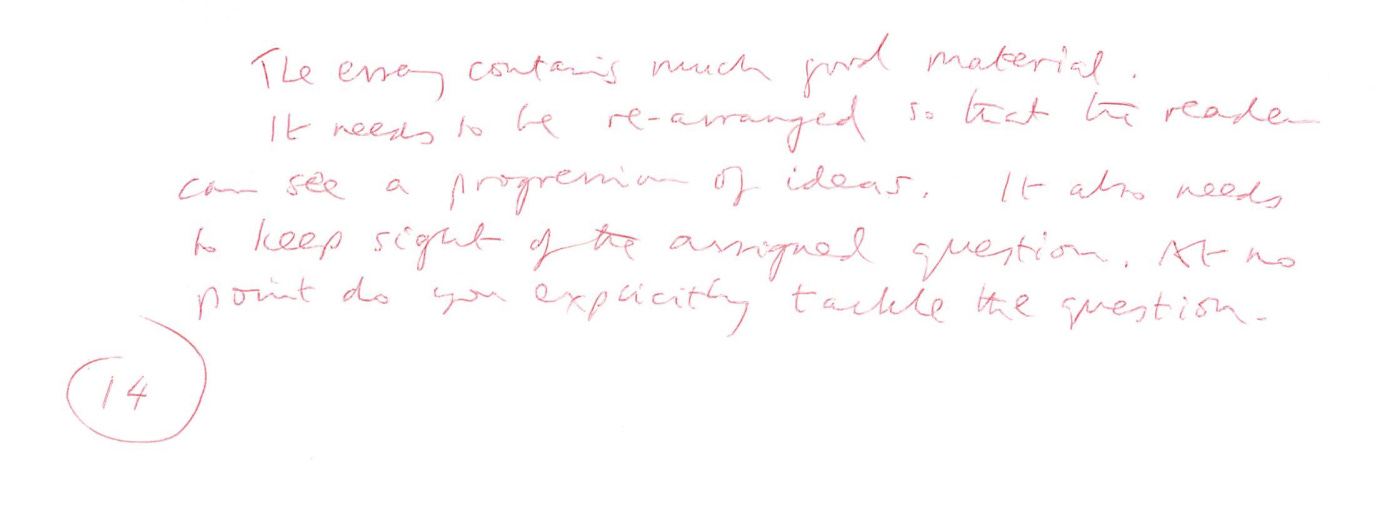 The essay contains much good material.
It needs to be re-arranged so that the reader
can see a progression of ideas. It also needs
to keep sight of the assigned question. At no
point do you explicitly tackle the question.
14